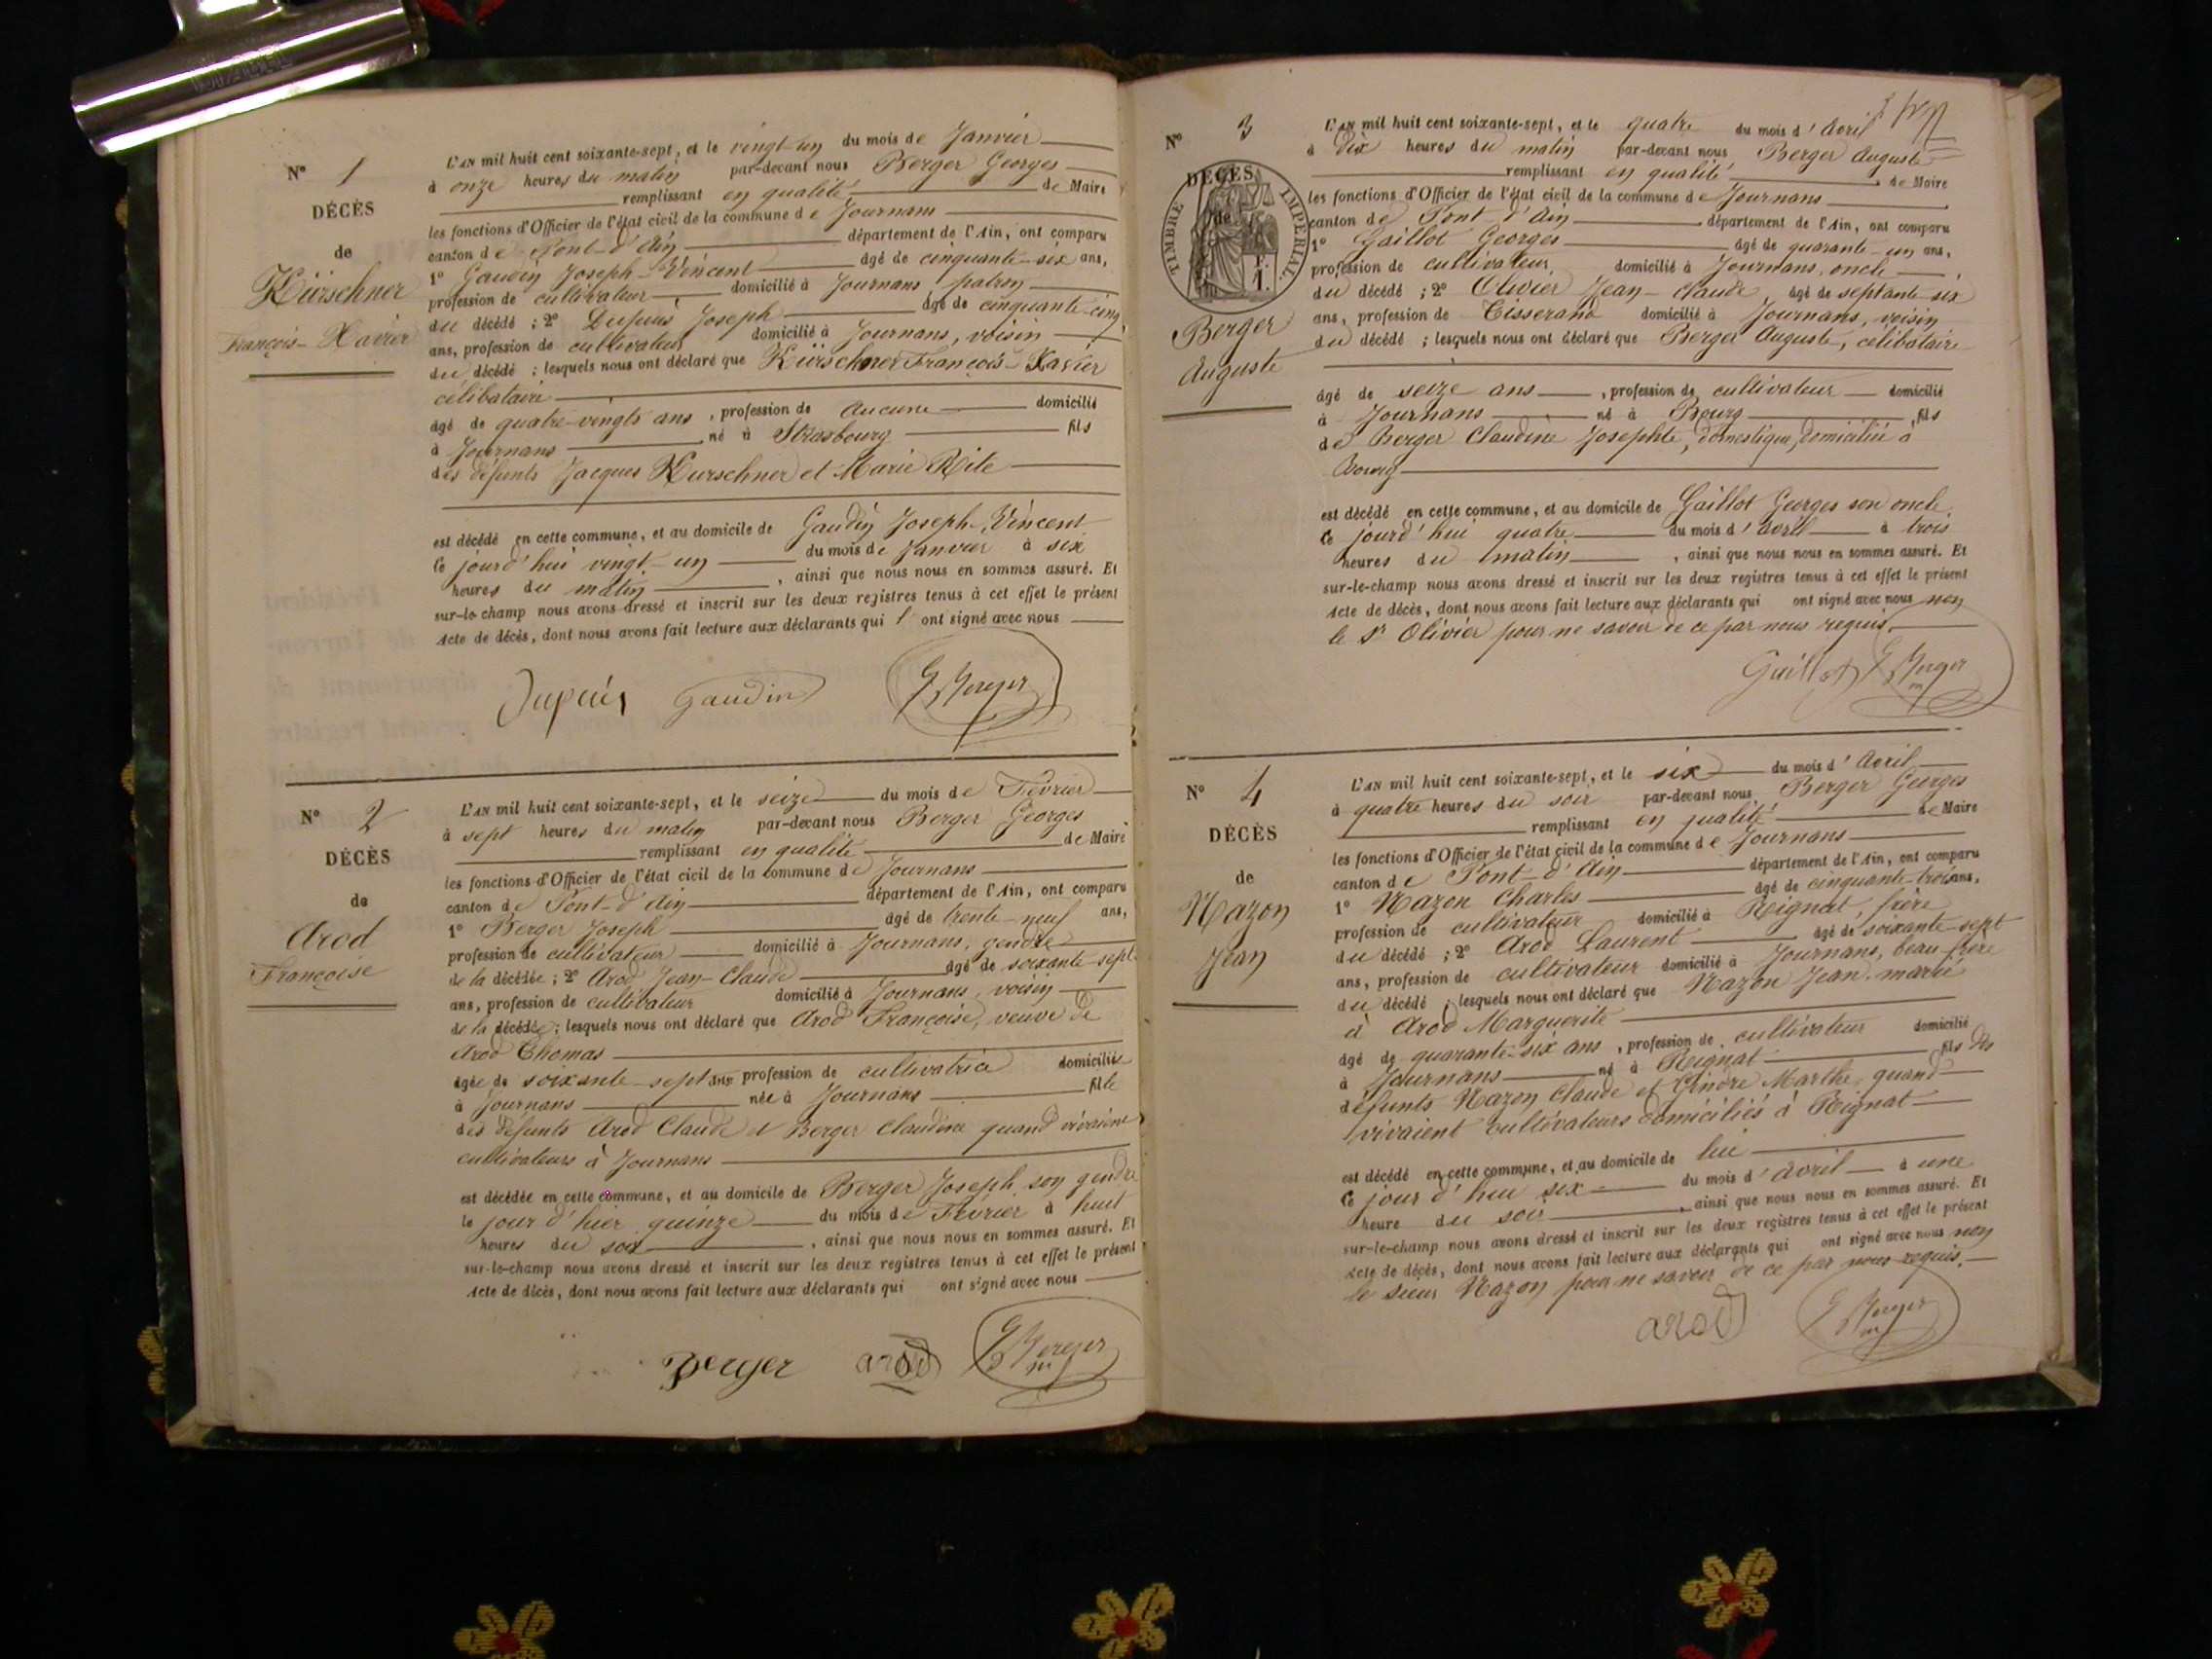 N° 1
DÉCÈS
de
Kürschner
François-Xavier
L'AN mil huit cent soixante-sept, et le vingt-un du mois de Janvier
à onze heures du matin par-devant nous Berger Georges
remplissant en qualité de Maire
les fonctions d'Officier de l'état civil de la commune de Journans
canton de Pont-d'Ain département de l'Ain, ont comparu
1° Gaudin Joseph-Vincent âgé de cinquante-six ans,
profession de cultivateur domicilié à Journans, patron
du décédé ; 2° Dupuis Joseph âgé de cinquante-cinq
ans, profession de cultivateur domicilié à Journans, voisin
du décédé ; lesquels nous ont déclaré que Kürschner François-Xavier
célibataire
âgé de quatre-vingts ans, profession de Aucune domicilié
à Journans né à Strasbourg fils
des défunts Jacques Kurschner et Marie Rite
est décédé en cette commune, et au domicile de Gaudin Joseph-Vincent
le jourd'hui vingt-un du mois de Janvier à six
heures du matin, ainsi que nous nous en sommes assuré. Et
sur-le-champ nous avons dressé et inscrit sur les deux registres tenus à cet effet le présent
Acte de décès, dont nous avons fait lecture aux déclarants qui l'ont signé avec nous
Dupuis Gaudin G Berger
N° 2
DÉCÈS
de
Arod
Françoise
L'AN mil huit cent soixante-sept, et le seize du mois de Février
à sept heures du matin par-devant nous Berger Georges
remplissant en qualité de Maire
les fonctions d'Officier de l'état civil de la commune de Journans
canton de Pont-d'Ain département de l'Ain, ont comparu
1° Berger Joseph âgé de trente-neuf ans,
profession de cultivateur domicilié à Journans, gendre
de la décédée ; 2° Arod Jean-Claude âgé de soixante-sept
ans, profession de cultivateur domicilié à Journans, voisin
de la décédée ; lesquels nous ont déclaré que Arod Françoise, veuve de
Arod Thomas
âgée de soixante-sept ans profession de cultivatrice domiciliée
à Journans née à Journans fille
des défunts Arod Claude et Berger Claudine quand vivaient
cultivateurs à Journans
est décédée en cette commune, et au domicile de Berger Joseph son gendre
le jour d'hier quinze du mois de Février à huit
heures du soir, ainsi que nous nous en sommes assuré. Et
sur-le-champ nous avons dressé et inscrit sur les deux registres tenus à cet effet le présent
Acte de décès, dont nous avons fait lecture aux déclarants qui ont signé avec nous
Berger arod G Berger m
N° 3
DÉCÈS
de
TIMBRE IMPERIAL
F. 1.
Berger
Auguste
L'AN mil huit cent soixante-sept, et le quatre du mois d'Avril
à dix heures du matin par-devant nous Berger Auguste
remplissant en qualité de Maire
les fonctions d'Officier de l'état civil de la commune de Journans
canton de Pont-d'Ain département de l'Ain, ont comparu
1° Gaillot Georges âgé de quarante-un ans,
profession de cultivateur, domicilié à Journans, oncle
du décédé ; 2° Olivier Jean-Claude, âgé de septante-six
ans, profession de Tisserand domicilié à Journans, voisin
du décédé ; lesquels nous ont déclaré que Berger Auguste, célibataire
âgé de seize ans, profession de cultivateur domicilié
à Journans né à Bourg, fils
de Berger Claudine Josephte, domestique, domiciliée à
Bourg
est décédé en cette commune, et au domicile de Gaillot Georges son oncle
le jourd'hui quatre du mois d'Avril à trois
heures du matin, ainsi que nous nous en sommes assuré. Et
sur-le-champ nous avons dressé et inscrit sur les deux registres tenus à cet effet le présent
Acte de décès, dont nous avons fait lecture aux déclarants qui ont signé avec nous non
le Sr Olivier pour ne savoir de ce par nous requis.
Gaillot G Berger m
N° 4
DÉCÈS
de
Nazon
Jean
L'AN mil huit cent soixante-sept, et le six du mois d'Avril
à quatre heures du soir par-devant nous Berger Georges
remplissant en qualité de Maire
les fonctions d'Officier de l'état civil de la commune de Journans
canton de Pont-d'Ain département de l'Ain, ont comparu
1° Nazon Charles âgé de cinquante-trois ans,
profession de cultivateur domicilié à Rignat, frère
du décédé ; 2° Arod Laurent âgé de soixante-sept
ans, profession de cultivateur domicilié à Journans, beau-frère
du décédé ; lesquels nous ont déclaré que Nazon Jean, marié
à Arod Marguerite
âgé de quarante-six ans, profession de cultivateur domicilié
à Journans né à Rignat fils des
défunts Nazon Claude et Gindre Marthe quand
vivaient cultivateurs domiciliés à Rignat
est décédé en cette commune, et au domicile de lui
le jour d'hui six du mois d'Avril à une
heure du soir, ainsi que nous nous en sommes assuré. Et
sur-le-champ nous avons dressé et inscrit sur les deux registres tenus à cet effet le présent
Acte de décès, dont nous avons fait lecture aux déclarants qui ont signé avec nous non
le sieur Nazon pour ne savoir de ce par nous requis.
arod G Berger m